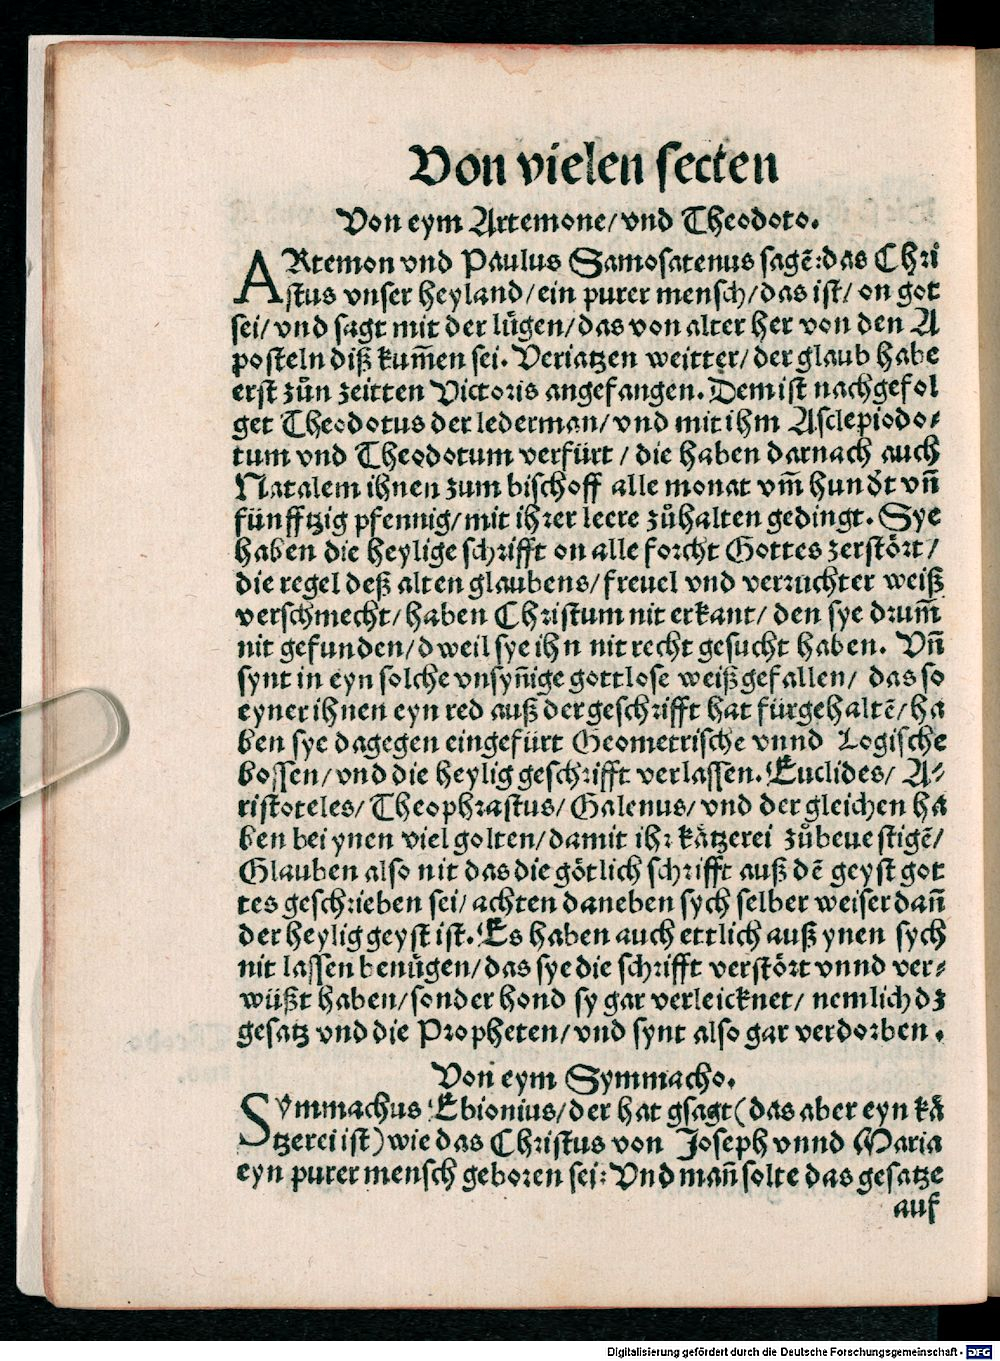 Von vielen secten
Von eym Artemone/ vnd Theodoto.
ARtemon vnd Paulus Samosatenus sagē: das Chri
stus vnser heyland/ ein purer mensch/ das ist/ on got
sei/ vnd sagt mit der lügen/ das von alter her von den A
posteln diß kum̄en sei. Veriatzen weitter/ der glaub habe
erst zůn zeitten Victoris angefangen. Dem ist nachgefol
get Theodotus der lederman/ vnd mit ihm Asclepiodo⸗
tum vnd Theodotum verfürt / die haben darnach auch
Natalem ihnen zum bischoff alle monat vm̄ hundt vn̄
fünfftzig pfennig/ mit ihrer leere zůhalten gedingt. Sye
haben die heylige schrifft on alle forcht Gottes zerstört /
die regel deß alten glaubens/ freuel vnd verruchter weiß
verschmecht/ haben Christum nit erkant/ den sye drum̄
nit gefunden/ dweil sye ihn nit recht gesucht haben. Vn̄
synt in eyn solche vnsyn̄ige gottlose weiß gefallen/ das so
eyner ihnen eyn red auß der geschrifft hat fürgehaltē/ ha
ben sye dagegen eingefürt Geometrische vnnd Logische
bossen/ vnd die heylig geschrifft verlassen. Euclides/ A⸗
ristoteles/ Theophrastus/ Galenus/ vnd der gleichen ha
ben bei ynen viel golten/ damit ihr kätzerei zůbeuestigē/
Glauben also nit das die götlich schrifft auß dē geyst got
tes geschrieben sei/ achten daneben sych selber weiser dan̄
der heylig geyst ist. Es haben auch ettlich auß ynen sych
nit lassen benügen/ das sye die schrifft verstört vnnd ver⸗
wüßt haben/ sonder hond sy gar verleicknet/ nemlich dz
gesatz vnd die Propheten/ vnd synt also gar verdorben.
Von eym Symmacho.
SYmmachus Ebionius/ der hat gsagt (das aber eyn kä
tzerei ist) wie das Christus von Joseph vnnd Maria
eyn purer mensch geboren sei: Vnd man̄ solte das gesatze
auf
Digitalisierung gefördert durch die Deutsche Forschungsgemeinschaft - DFG